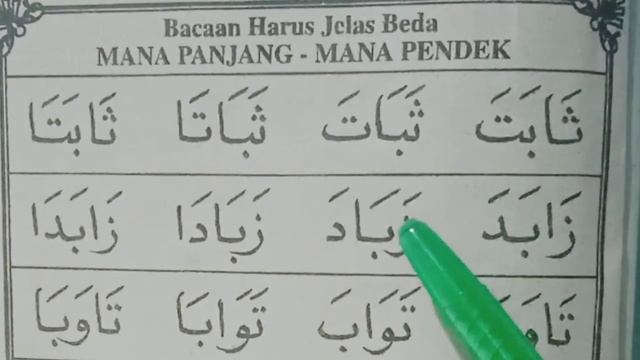 Bacaan Harus Jelas Beda
MANA PANJANG - MANA PENDEK
ثَابَتَ ثَبَاتَ ثَبَاتَا ثَابَتَا
زَابَدَ زَبَادَ زَبَادَا زَابَدَا
تَوَابَ تَوَابَا تَاوَبَا